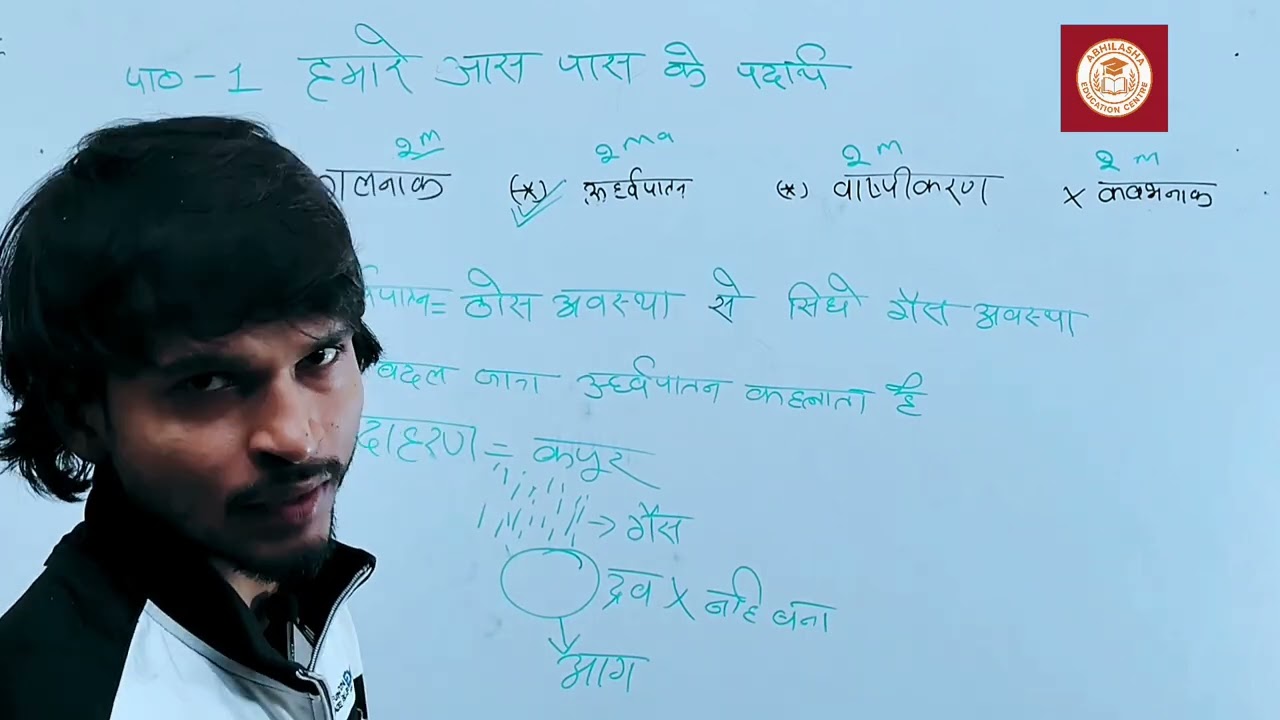 पाठ - 1 हमारे आस पास के पदार्थ
ABHILASHA EDUCATION CENTRE
2m 2ma 2m 2m
गलनाक (*) ऊर्ध्वपातन (*) वाष्पीकरण x क्वथनाक
र्वपातन = ठोस अवस्था से सिधे गैस अवस्था
बदल जाना उर्ध्वपातन कहलाता है
दाहरण = कपूर
→ गैस
द्रव X नहि बना
आग